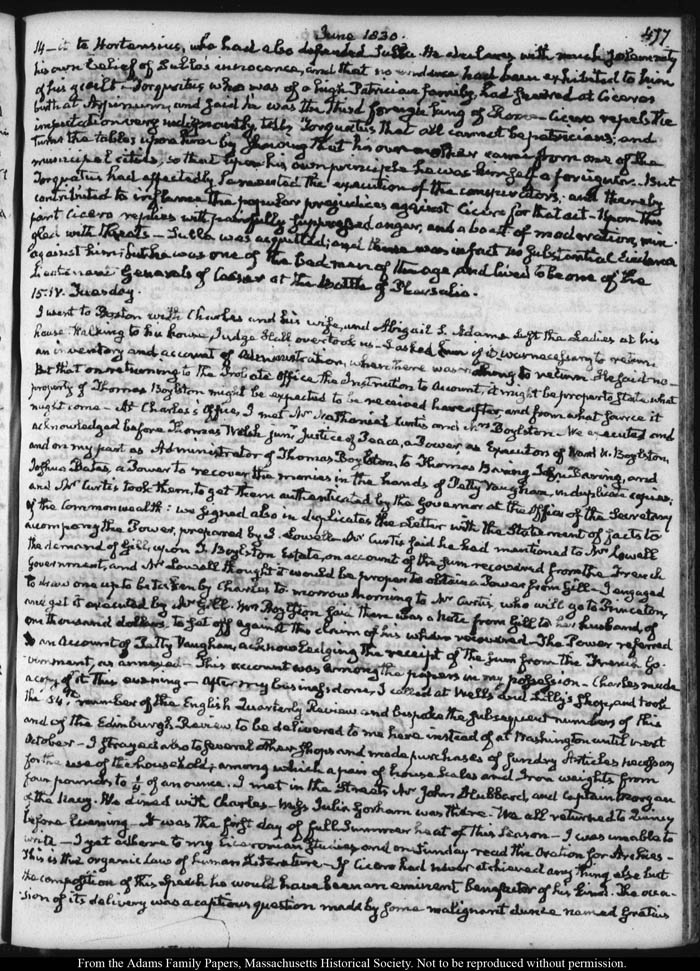 June 1830.
477
14 — it to Hortensius, who had also defended Sulla. He declares with much solemnity
his own belief of Sulla's innocence, and that no evidence had been exhibited to him
of his guilt — Torquatus, who was of a high Patrician family, had sneered at Cicero's
birth at Arpinum, and said he was the third foreign king of Rome — Cicero repels the
imputation very indignantly tells Torquatus that all cannot be patricians; and
turns the tables upon him by shewing that his own mother came from one of the
municipal cities; so that upon his own principle he was himself a foreigner — But
Torquatus had affectedly lamented the execution of the conspirators, and thereby
contributed to inflame the popular prejudices against Cicero for that act. Upon this
part Cicero replies with painfully suppressed anger, and a boast of moderation, min-
gled with threats — Sulla was acquitted; and there was in fact no substantial evidence
against him; but he was one of the bad men of the age, and lived to be one of the
Lieutenant Generals of Caesar at the Battle of Pharsalia.
15. IV. Tuesday.
I went to Boston with Charles and his wife, and Abigail S. Adams. Left the Ladies at his
house. Walking to his house, Judge Hall overtook us — I asked him if it was necessary to return
an inventory and account of Administration, where there was nothing to return. He said no —
But that on returning to the Probate Office the Instruction to Account, it might be proper to state what
property of Thomas Boylston might be expected to be received hereafter, and from what source it
might come — At Charles's Office, I met Mr Nathaniel Curtis and Mrs Boylston — We executed and
acknowledged before Thomas Welsh junr Justice of Peace, a Power, as Executors of Ward N. Boylston,
and on my part as Administrator of Thomas Boylston, to Thomas Baring John Baring, and
Joshua Bates, a Power to recover the monies in the hands of Petty Vaughan, in duplicate copies;
and Mr Curtis took them, to get them authenticated by the Governor at the Office of the Secretary
of the Commonwealth: we signed also in duplicates the Letter with the Statement of facts to
accompany the Power, prepared by J. Lowell — Mr Curtis said he had mentioned to Mr Lowell
the demand of Gill, upon T. Boylston Estate, on account of the sum recovered from the French
Government, and Mr Lowell thought it would be proper to obtain a Power from Gill — I engaged
to draw one up to be taken by Charles to-morrow morning to Mr Curtis, who will go to Princeton,
and get it executed by Mr Gill. Mrs Boylston said there was a Note from Gill to her husband, of
one thousand dollars to set off against the claim of his when recovered — The Power referred
to an Account of Petty Vaughan, acknowledging the receipt of the sum from the French Go-
vernment, as annexed — This account was among the papers in my possession — Charles made
a copy of it this evening — After my business done, I called at Wells and Lilly's Shop, and took
the 84th number of the English Quarterly Review and bespoke the subsequent numbers of this
and of the Edinburgh Review to be delivered to me here instead of at Washington until next
October — I strayed also to several other shops and made purchases of sundry Articles necessary
for the use of the household; among which a pair of house Scales and Iron weights from
four pounds to 1/4 of an ounce. I met in the Streets Mr John Hubbard, and Captain Morgan
of the Navy. We dined with Charles — Miss Julia Gorham was there. We all returned to Quincy
before Evening — It was the first day of full Summer heat of this Season — I was unable to
write — I yet adhere to my Ciceronian Studies and on Sunday read the Oration for Archias —
This is the organic Law of human Literature — If Cicero had never achieved any thing else but
the composition of this Speech he would have been an eminent benefactor of his kind. The occa-
sion of its delivery was a captious question made by some malignant dunce named Gratius
From the Adams Family Papers, Massachusetts Historical Society. Not to be reproduced without permission.